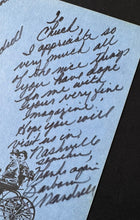 Chuck,
I appreciate so
very much all
of the nice things
you have done
me with
your very fine
magazine.
Hope you will
visit us in
Nashville
again
Thanks again
Barbara
Mandrell